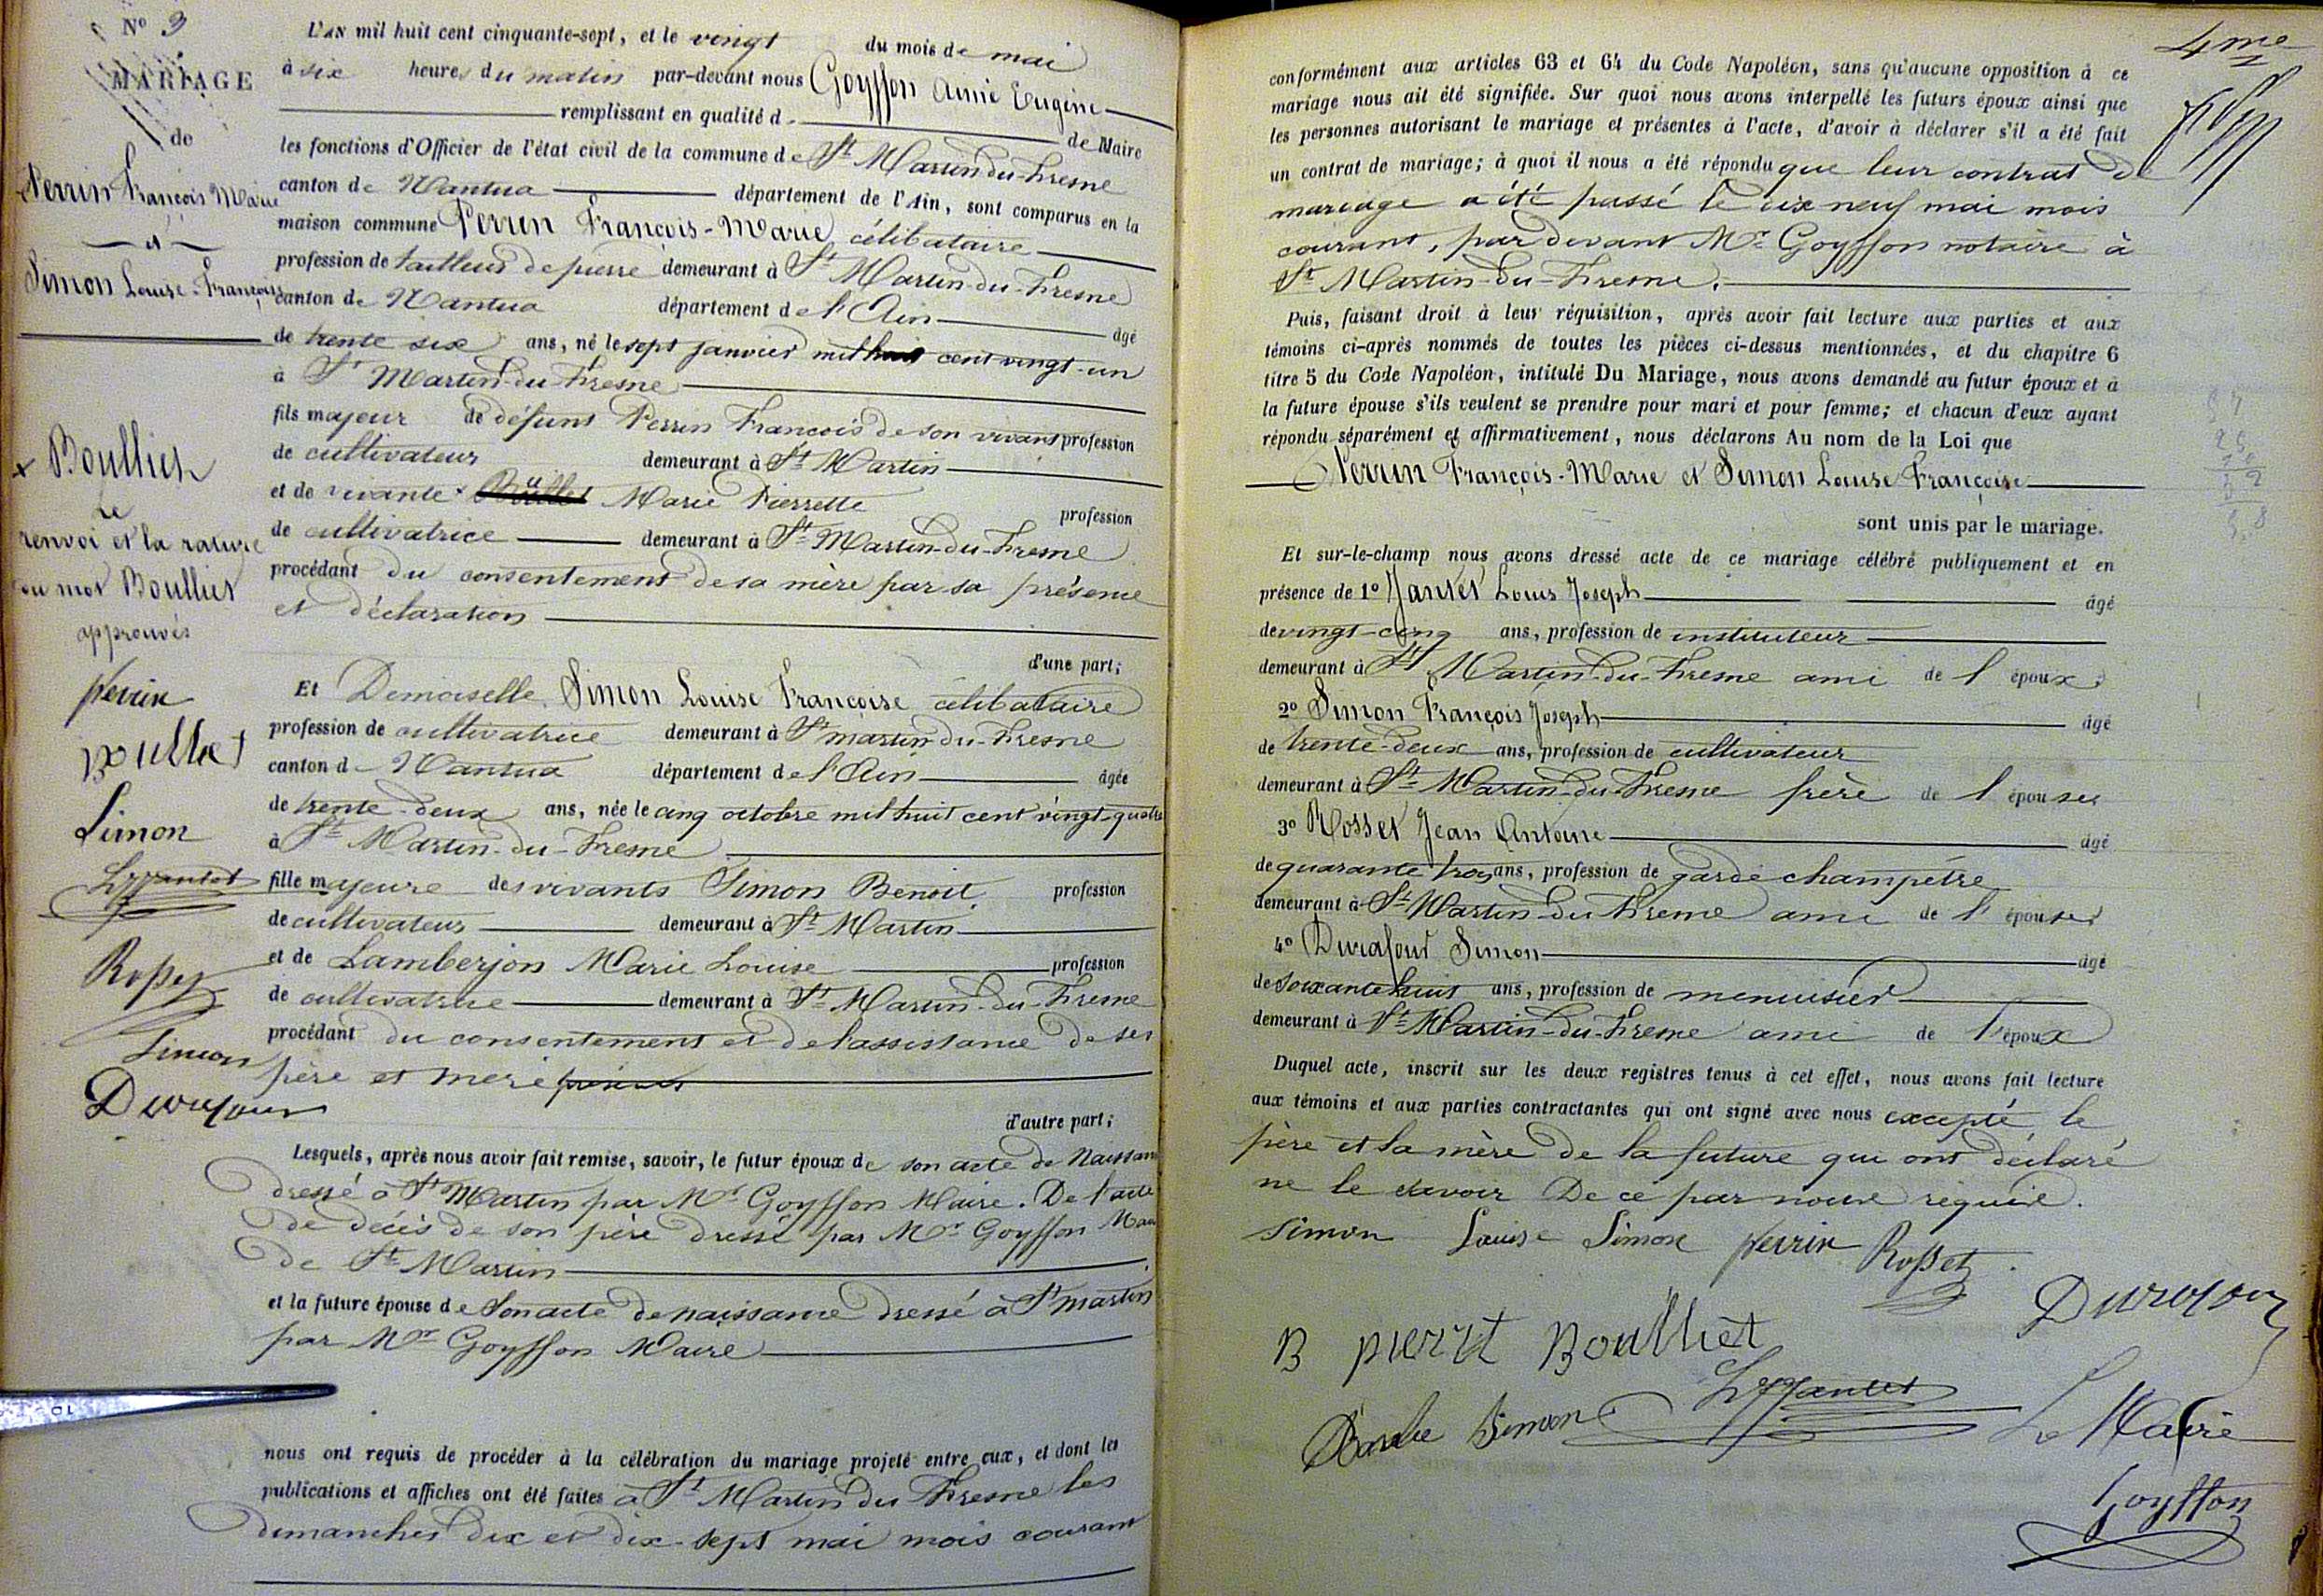 N° 3
MARIAGE
de
Perrin François Marie
et
Simon Louise-Françoise
x Boulliet
Le
renvoi et la rature
du mot Boulliet
approuvés
perrin
Boulliet
Simon
Rosset
Simon
L'AN mil huit cent cinquante-sept, et le vingt du mois de mai
à six heures du matin par-devant nous Goyffon Aimé Eugène
remplissant en qualité d de Maire
les fonctions d'Officier de l'état civil de la commune de St Martin-du-Fresne
canton de Nantua département de l'Ain, sont comparus en la
maison commune Perrin François-Marie célibataire
profession de tailleur de pierre demeurant à St Martin-du-Fresne
canton de Nantua département de l'Ain âgé
de trente six ans, né le sept janvier mil huit cent vingt-un
à St Martin-du-Fresne
fils majeur de défunt Perrin François de son vivant profession
de cultivateur demeurant à St Martin
et de vivante x Boulliet Marie Pierrette profession
de cultivatrice demeurant à St Martin-du-Fresne
procédant du consentement de sa mère par sa présence
et déclaration
d'une part;
Et Demoiselle Simon Louise Françoise célibataire
profession de cultivatrice demeurant à St martin-du-Fresne
canton d Nantua département de l'Ain âgée
de trente-deux ans, née le cinq octobre mil huit cent vingt-quatre
à St Martin-du-Fresne
fille majeure des vivants Simon Benoit profession
de cultivateur demeurant à St Martin
et de Lamberjon Marie Louise profession
de cultivatrice demeurant à St Martin-du-Fresne
procédant du consentement et de l'assistance de ses
père et mère
d'autre part;
Lesquels, après nous avoir fait remise, savoir, le futur époux de son acte de Naissance
dressé à St Martin par Mr Goyffon Maire. De l'acte
de décès de son père dressé par Mr Goyffon Maire
de St Martin
et la future épouse de son acte de naissance dressé à St martin
par Mr Goyffon Maire
nous ont requis de procéder à la célébration du mariage projeté entre eux, et dont les
publications et affiches ont été faites à St Martin du Fresne les
dimanches dix et dix-sept mai mois courant
4me
conformément aux articles 63 et 64 du Code Napoléon, sans qu'aucune opposition à ce
mariage nous ait été signifiée. Sur quoi nous avons interpellé les futurs époux ainsi que
les personnes autorisant le mariage et présentes à l'acte, d'avoir à déclarer s'il a été fait
un contrat de mariage; à quoi il nous a été répondu que leur contrat de
mariage a été passé le dix neuf mai mois
courant, par devant Mr Goyffon notaire à
St Martin-du-Fresne.
Puis, faisant droit à leur réquisition, après avoir fait lecture aux parties et aux
témoins ci-après nommés de toutes les pièces ci-dessus mentionnées, et du chapitre 6
titre 5 du Code Napoléon, intitulé Du Mariage, nous avons demandé au futur époux et à
la future épouse s'ils veulent se prendre pour mari et pour femme; et chacun d'eux ayant
répondu séparément et affirmativement, nous déclarons Au nom de la Loi que
Perrin François-Marie et Simon Louise Françoise
sont unis par le mariage.
Et sur-le-champ nous avons dressé acte de ce mariage célébré publiquement et en
présence de 1° Jantet Louis Joseph âgé
de vingt-cinq ans, profession de instituteur
demeurant à St Martin-du-Fresne ami de l'époux
2° Simon François Joseph âgé
de trente-deux ans, profession de cultivateur
demeurant à St Martin-du-Fresne frère de l'épouse
3° Rosset Jean Antoine âgé
de quarante trois ans, profession de garde champêtre
demeurant à St Martin-du-Fresne ami de l'épouse
4° Durafour Simon âgé
de soixante huit ans, profession de menuisier
demeurant à St Martin-du-Fresne ami de l'époux
Duquel acte, inscrit sur les deux registres tenus à cet effet, nous avons fait lecture
aux témoins et aux parties contractantes qui ont signé avec nous excepté le
père et la mère de la future qui ont déclaré
ne le savoir De ce par nous requis.
Simon Louise Simon perrin Rosset
Durafour
B pierrt Boulliet
Simon
Le Maire
Goyffon